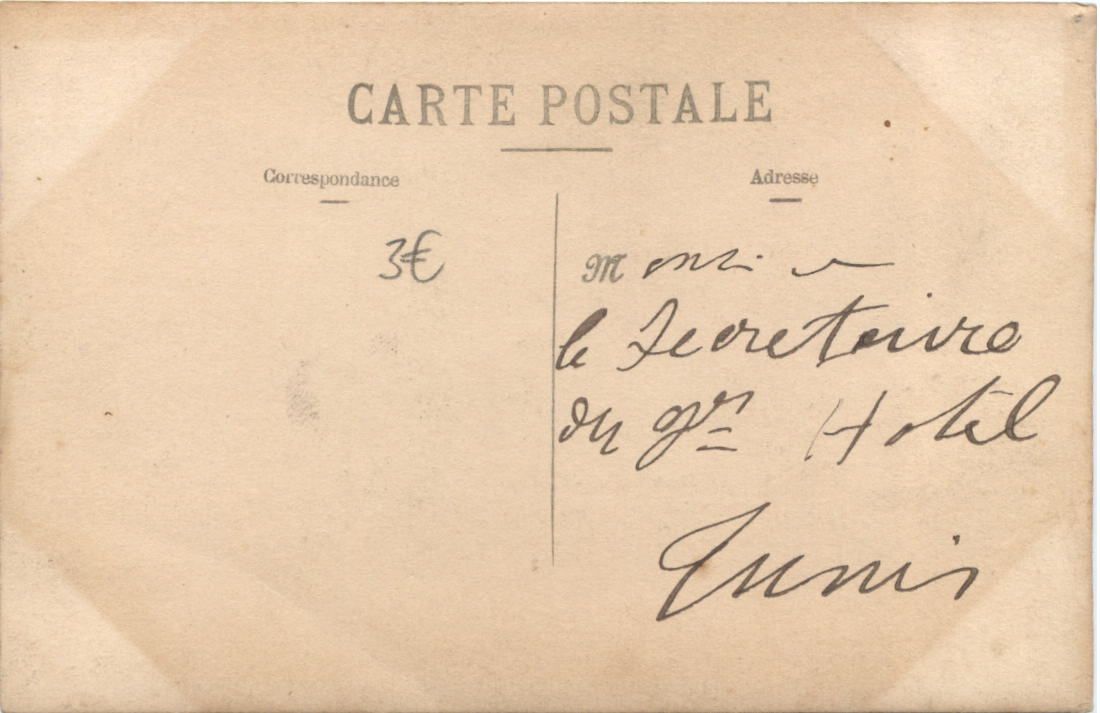 CARTE POSTALE
Correspondance
Adresse
3€
Monsieur
le Secretaire
du Hotel
Tunis